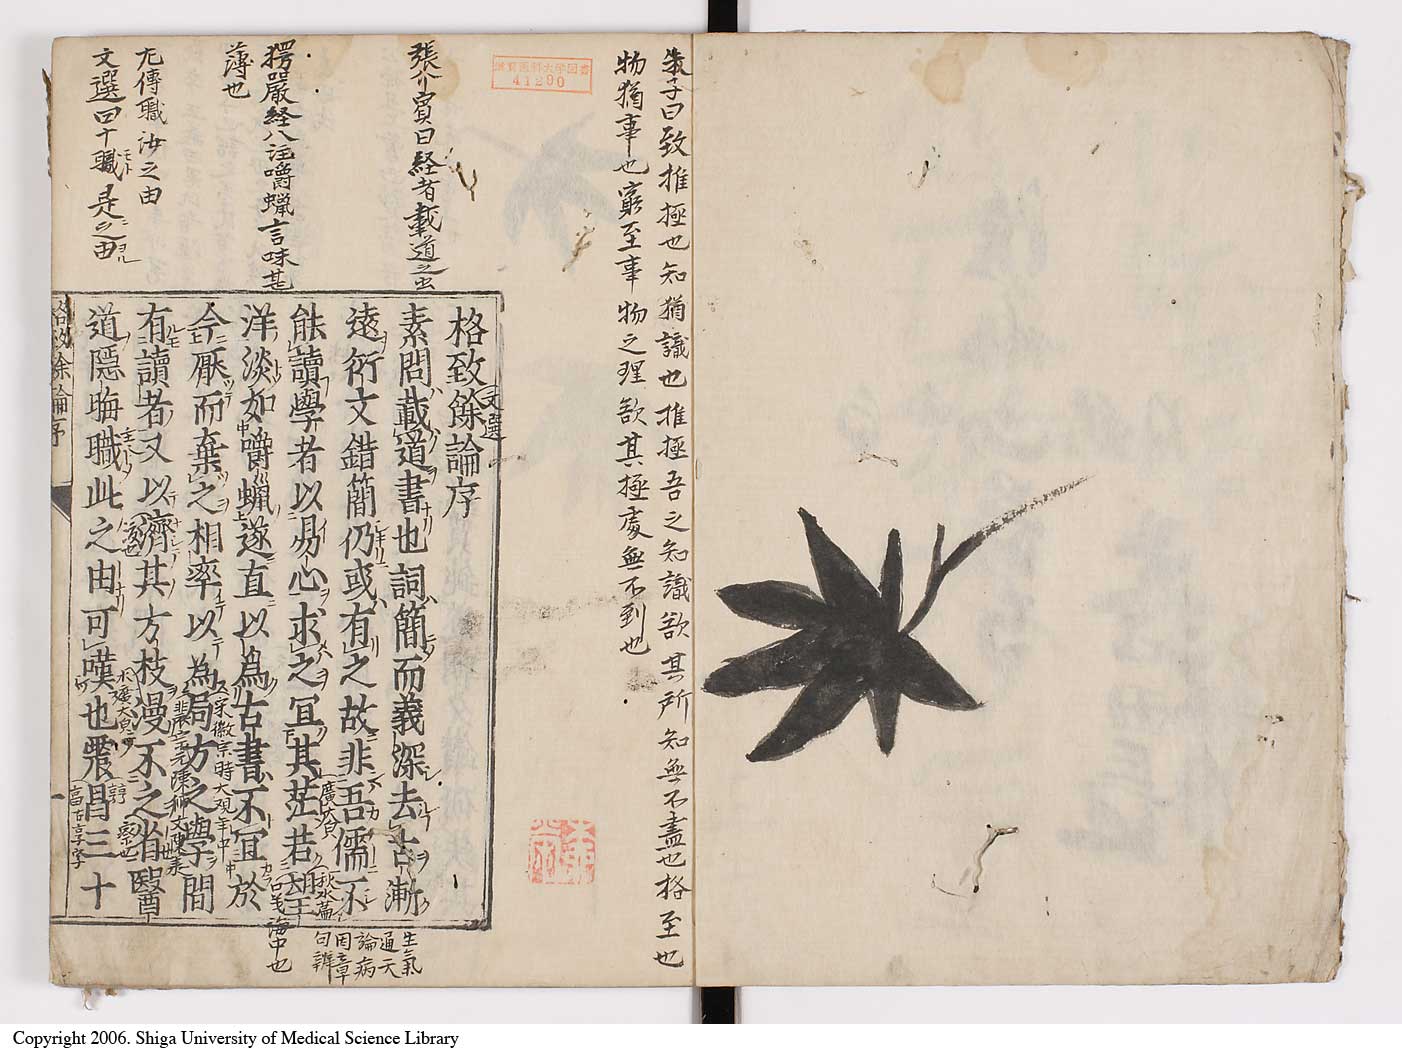 朱子曰致推極也知猶識也推極吾之知識欲其所知無不盡也格至也
物猶事也窮至事物之理欲其極處無不到也
滋賀医科大学図書
41290
張介賓曰経者載道之
楞嚴経八註嚼蠟言味甚
薄也
尤傳職汝之由
文選四十職是之由
格致餘論序
文選
素問載道書也詞簡而義深去古漸
遠衍文錯簡仍或有之故非吾儒不
能讀學者以易心求之宜其茫若望
洋淡如嚼蠟遂直以為古書不宜於
今厭而棄之相率以為局方之學間
有讀者又以濟其方技漫不之省醫
道隱晦職此之由可嘆也震昌三十
格致餘論序
一
生氣
通天
論病
因章
句辨
秋水篇
海中也
宋徽宗時大观年中
Copyright 2006. Shiga University of Medical Science Library